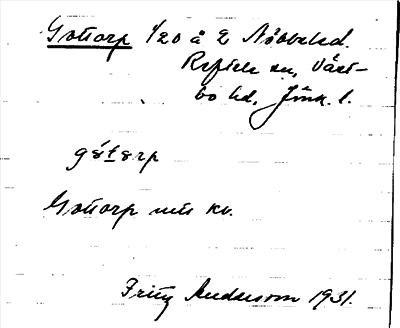 Gottorp 1/20 å 2 Nöbbeled.
Reftele sn, Väst-
bo hd, Jönk. l.
götərp
Gottorp mtl kv.
Fritz Andersson 1931.